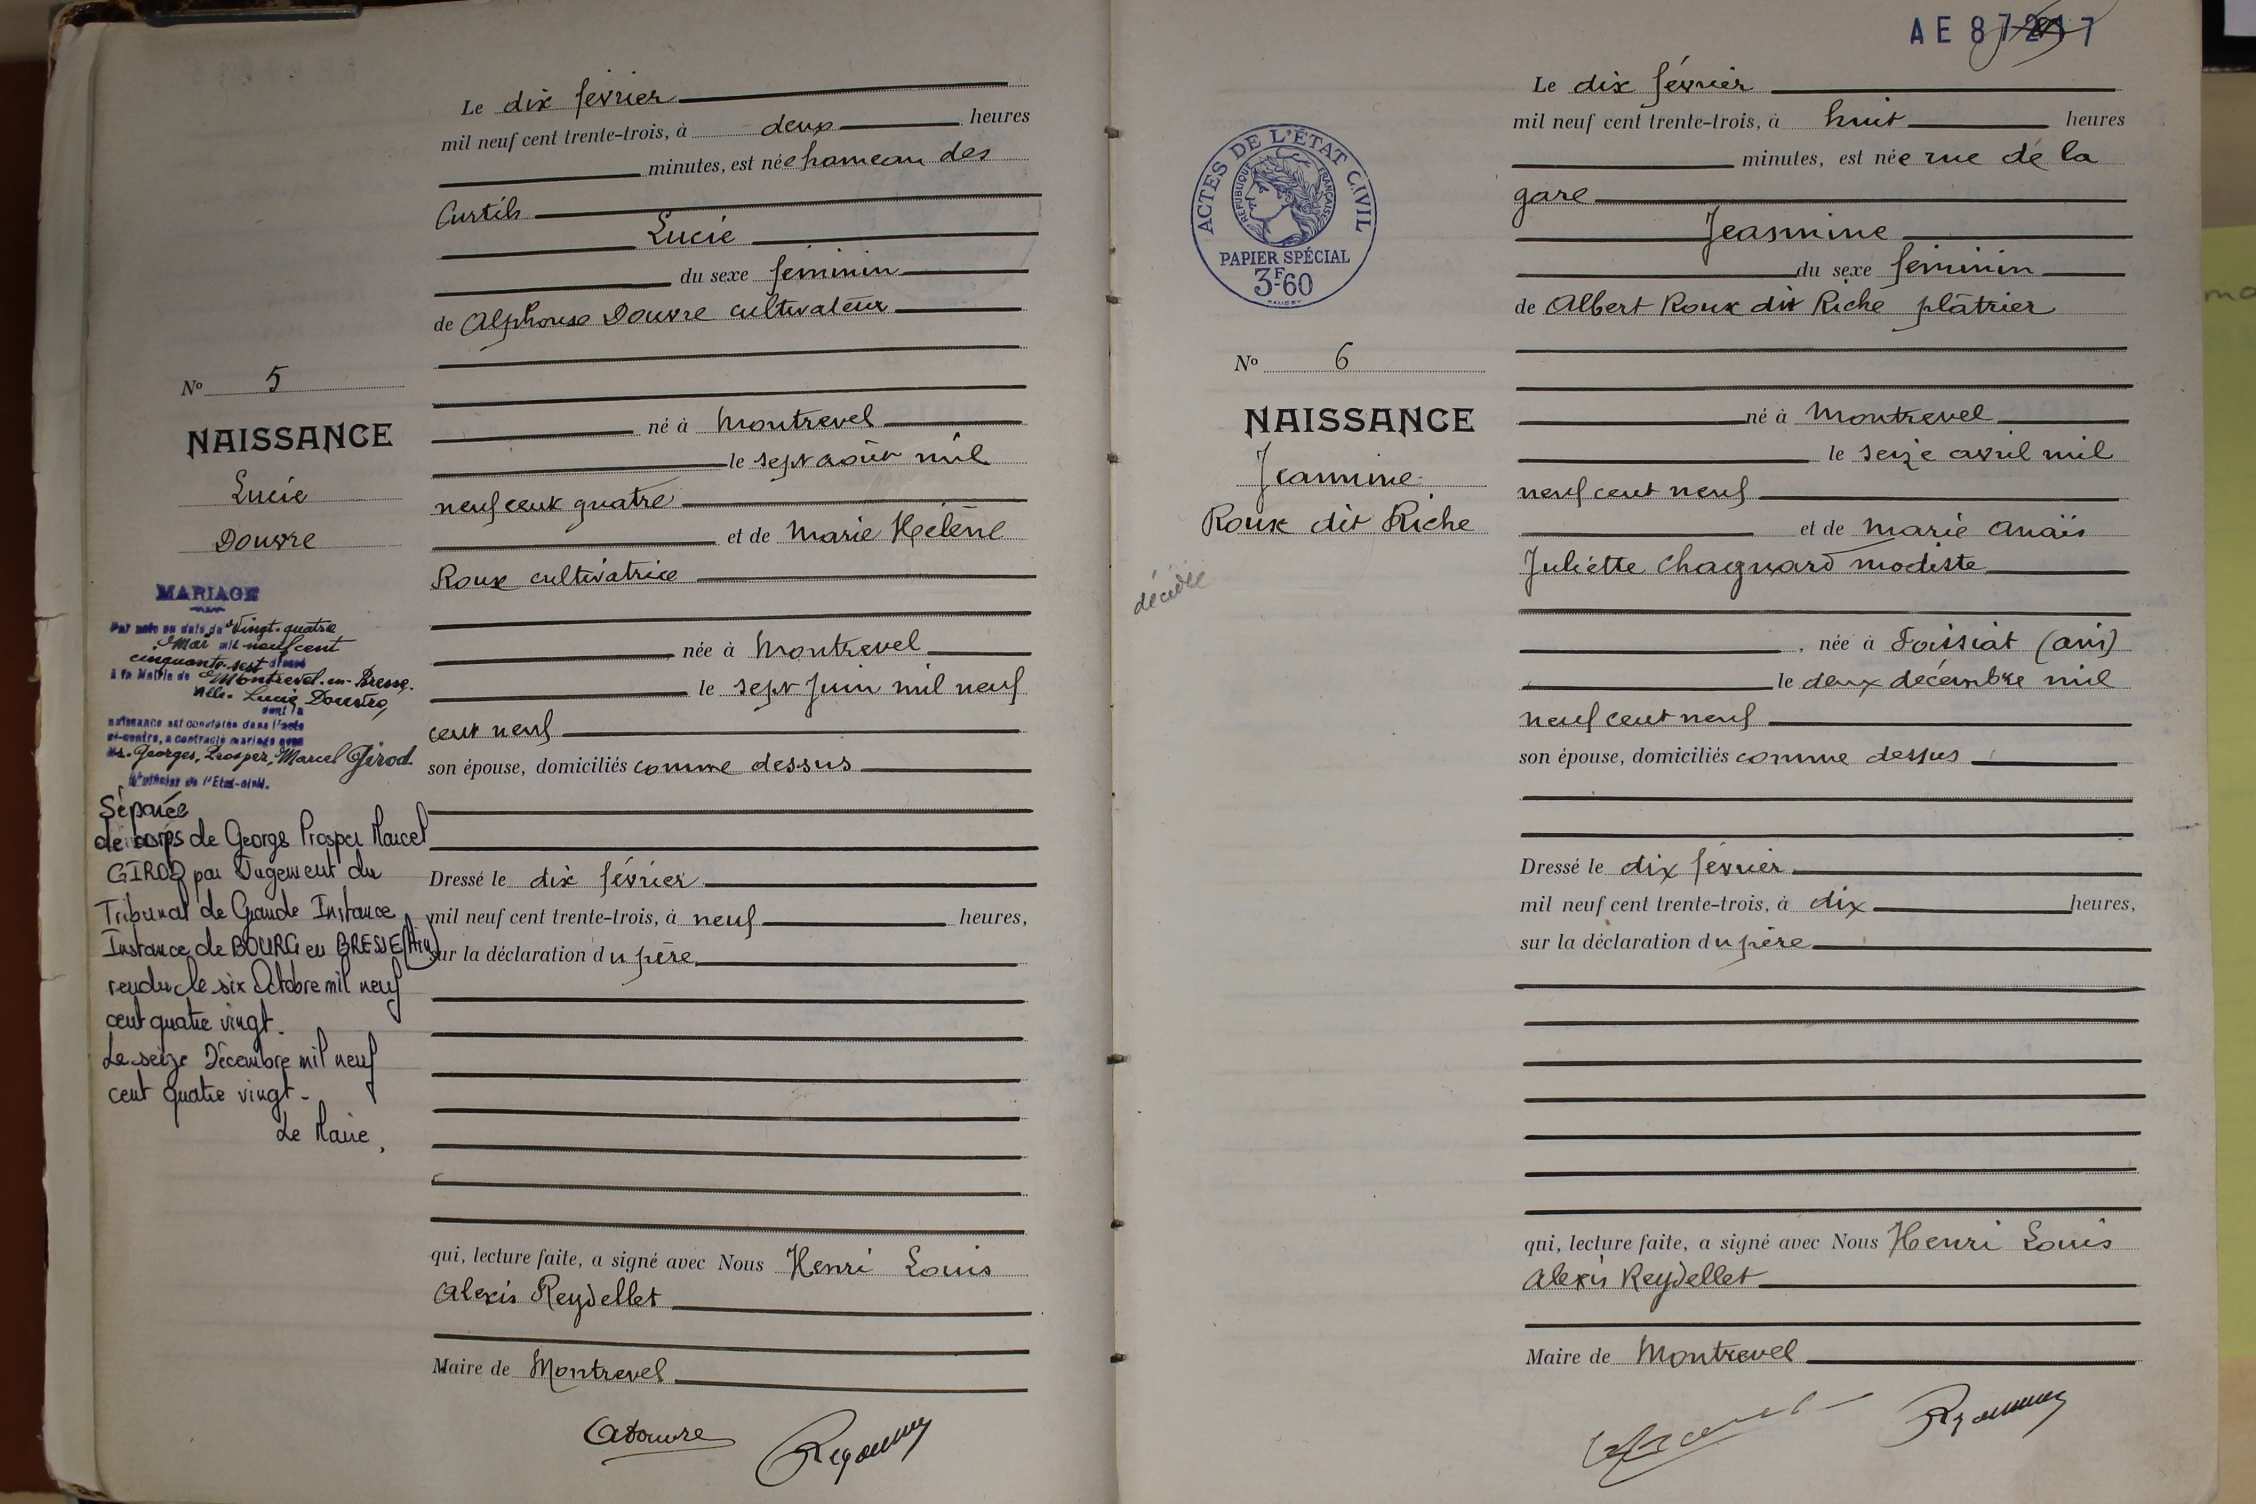 Le dix février
mil neuf cent trente-trois, à deux heures
minutes, est née hameau des
Curtils
Lucie
du sexe féminin
de Alphonse Douvre cultivateur
né à Montrevel
le sept août mil
neuf cent quatre
et de Marie Hélène
Roux cultivatrice
née à Montrevel
le sept juin mil neuf
cent neuf
son épouse, domiciliés comme dessus
Dressé le dix février
mil neuf cent trente-trois, à neuf heures,
sur la déclaration du père
qui, lecture faite, a signé avec Nous Henri Louis
Alexis Reydellet
Maire de Montrevel
ADouvre
No 5
NAISSANCE
Lucie
Douvre
MARIAGE
Par acte en date du Vingt-quatre
Mai mil neuf cent
cinquante-sept dressé
à la Mairie de Montrevel-en-Bresse
Melle Lucie Douvre,
dont la
naissance est constatée dans l'acte
ci-contre, a contracté mariage avec
Mr. Georges, Prosper, Marcel Girod.
L'officier de l'Etat-civil.
Séparée
de corps de Georges Prosper Marcel
GIROD par Jugement du
Tribunal de Grande Instance
Instance de BOURG en BRESSE (Ain)
rendu le six Octobre mil neuf
cent quatre vingt.
Le seize Décembre mil neuf
cent quatre vingt.
Le Maire,
AE 87217
ACTES DE L'ÉTAT CIVIL
RÉPUBLIQUE FRANÇAISE
PAPIER SPÉCIAL
3F-60
No 6
NAISSANCE
Jeannine
Roux dit Riche
décédée
Le dix février
mil neuf cent trente-trois, à huit heures
minutes, est née rue de la
gare
Jeannine
du sexe féminin
de Albert Roux dit Riche plâtrier
né à Montrevel
le seize avril mil
neuf cent neuf
et de Marie Anaïs
Juliette Chagnard modiste
, née à Foissiat (Ain)
le deux décembre mil
neuf cent neuf
son épouse, domiciliés comme dessus
Dressé le dix février
mil neuf cent trente-trois, à dix heures,
sur la déclaration du père
qui, lecture faite, a signé avec Nous Henri Louis
Alexis Reydellet
Maire de Montrevel